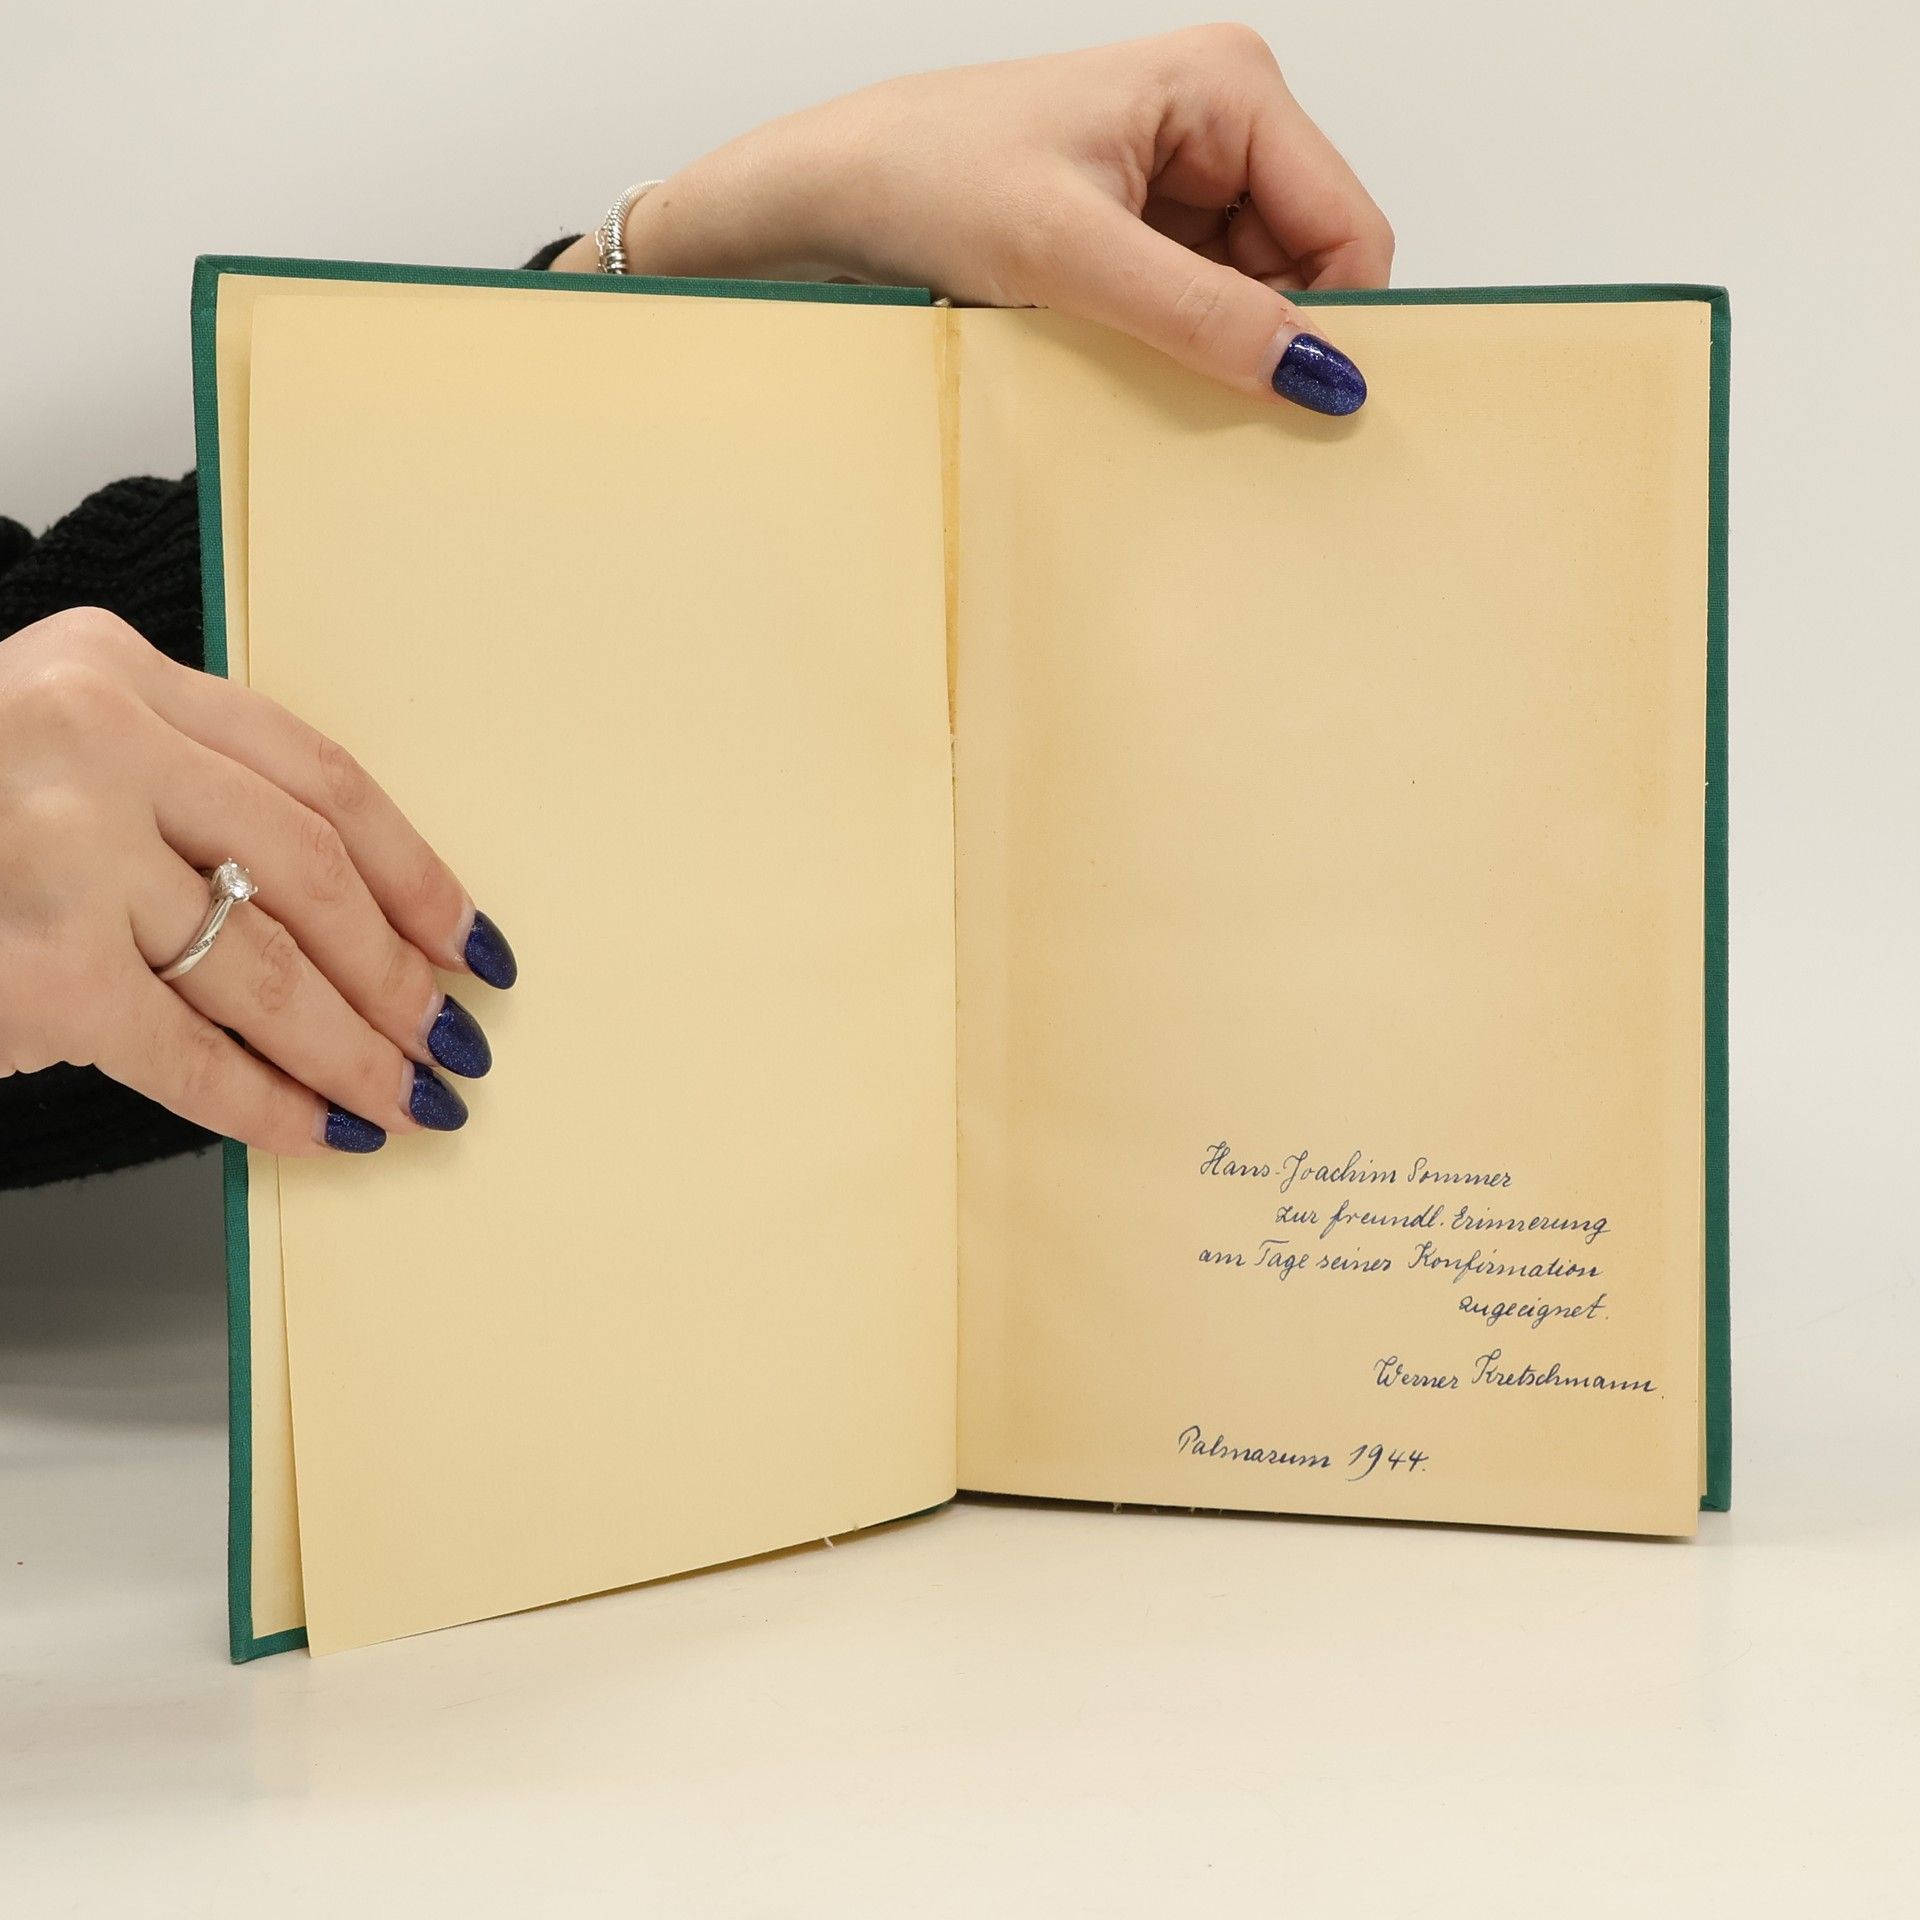 Hans-Joachim Sommer
zur freundl. Erinnerung
am Tage seiner Konfirmation
zugeeignet.
Werner Kretschmann.
Palmarum 1944.